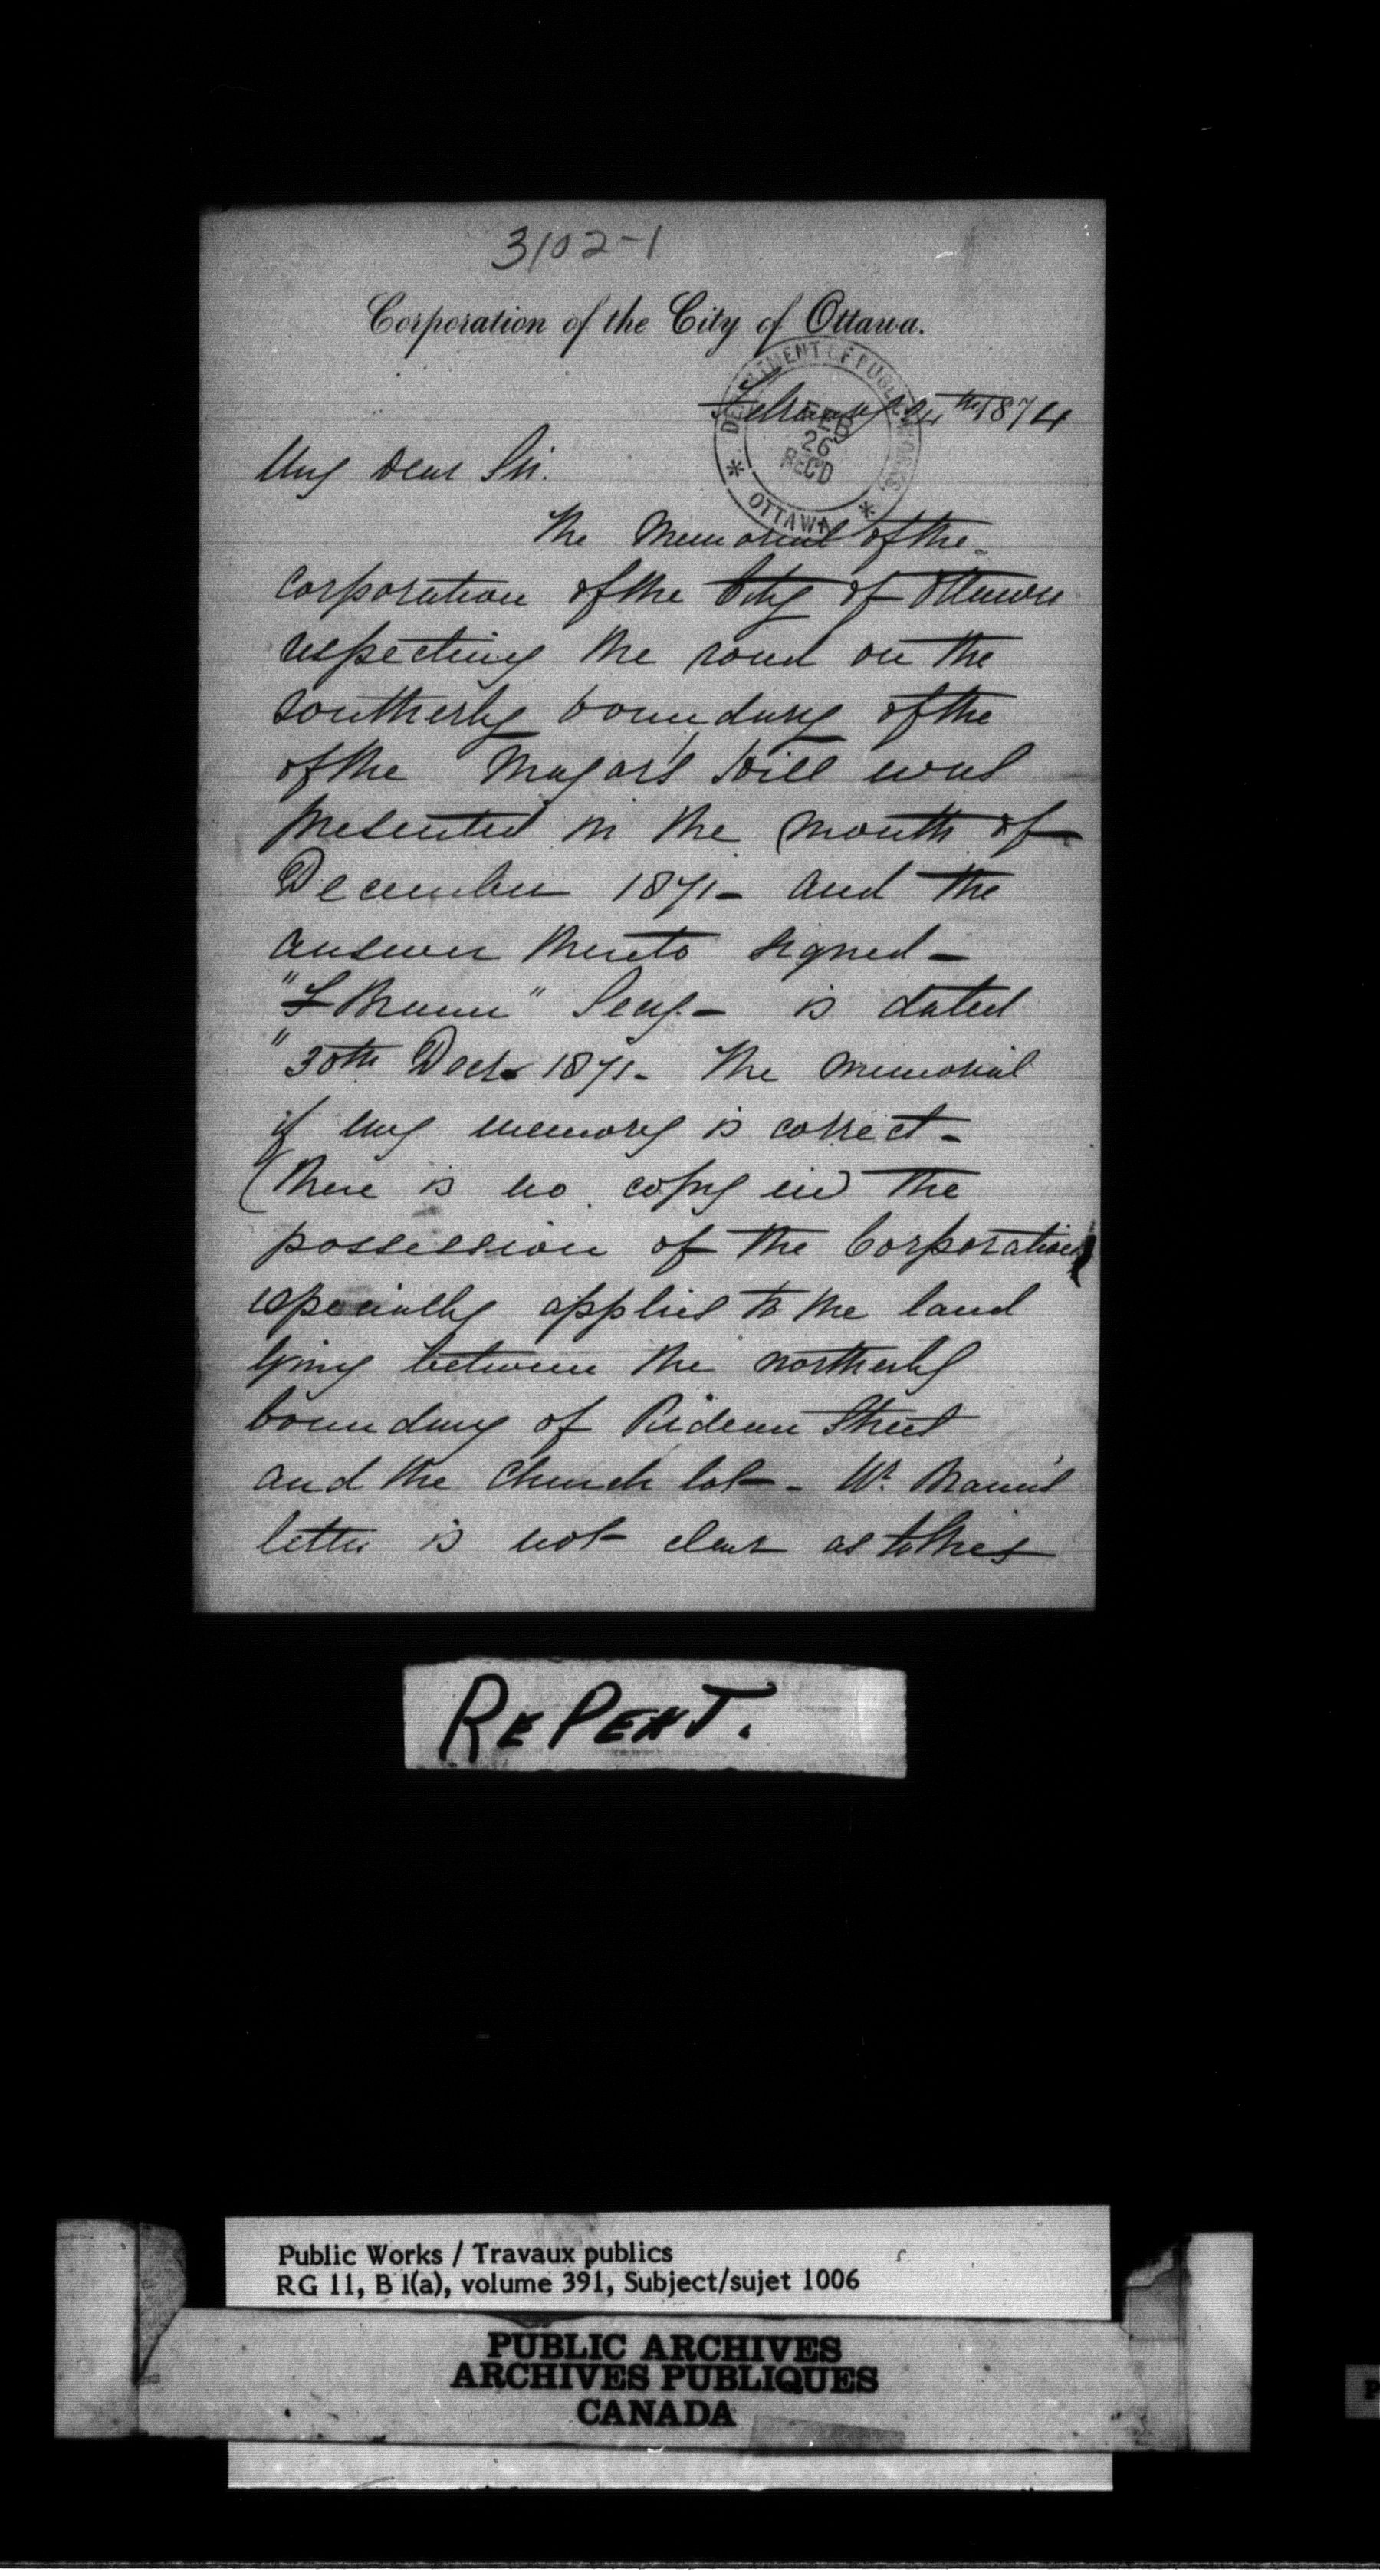 3102-1
Corporation of the City of Ottawa.
February 24th 1874
DEPARTMENT OF PUBLIC WORKS
FEB
26
REC'D
* OTTAWA *
My Dear Sir.
The Memorial of the
corporation of the City of Ottawa
respecting the road on the
southerly boundary of the
of the Major's Hill was
presented in the month of
December 1871- and the
answer thereto signed -
"F Braun" Secy.- is dated
"30th Decr 1871- The Memorial
if my memory is correct -
(there is no copy in the
possession of the Corporation)
especially applied to the land
lying between the northerly
boundary of Rideau Street
and the Church lot - Mr. Braun's
letter is not clear as to this
REPEAT.
Public Works / Travaux publics
RG 11, B 1(a), volume 391, Subject/sujet 1006
PUBLIC ARCHIVES
ARCHIVES PUBLIQUES
CANADA